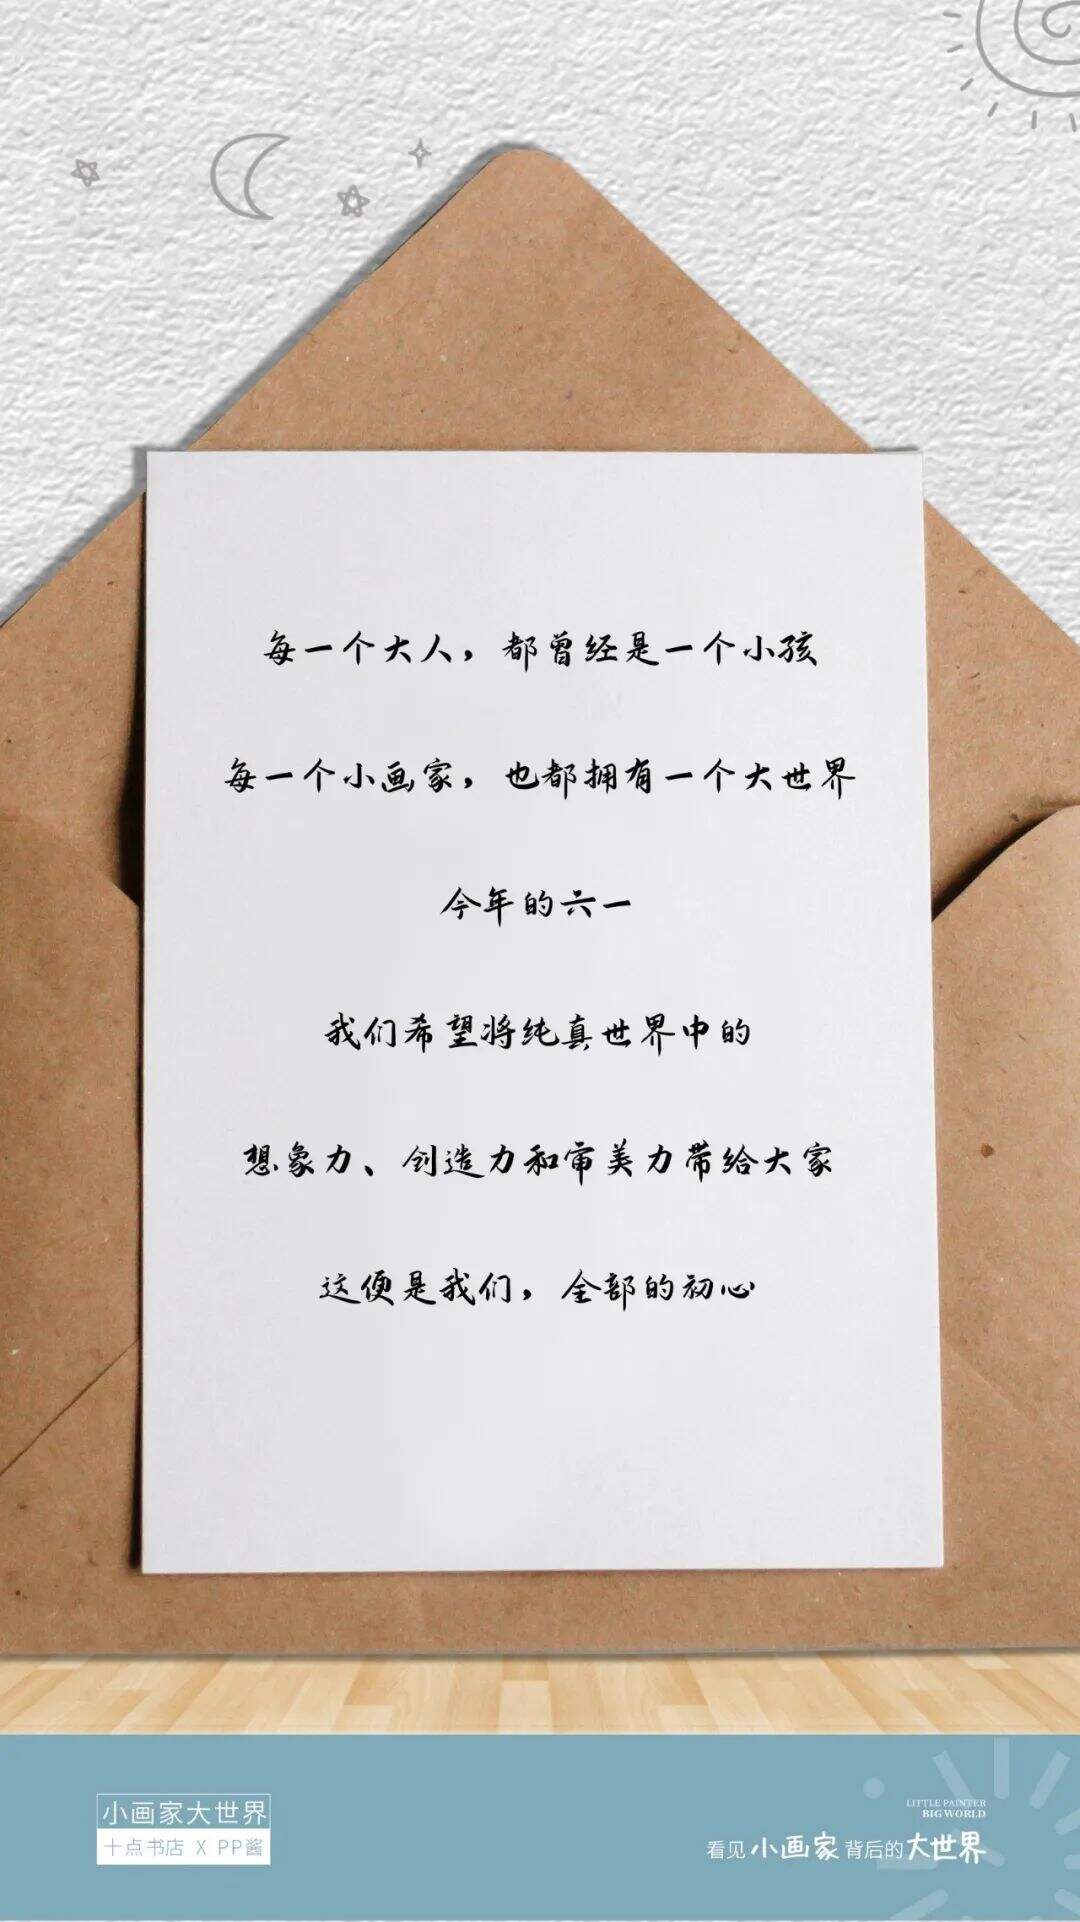 每一个大人，都曾经是一个小孩
每一个小画家，也都拥有一个大世界
今年的六一
我们希望将纯真世界中的
想象力、创造力和审美力带给大家
这便是我们，全部的初心
小画家大世界
十点书店 X PP酱
LITTLE PAINTER
BIG WORLD
看见小画家背后的大世界